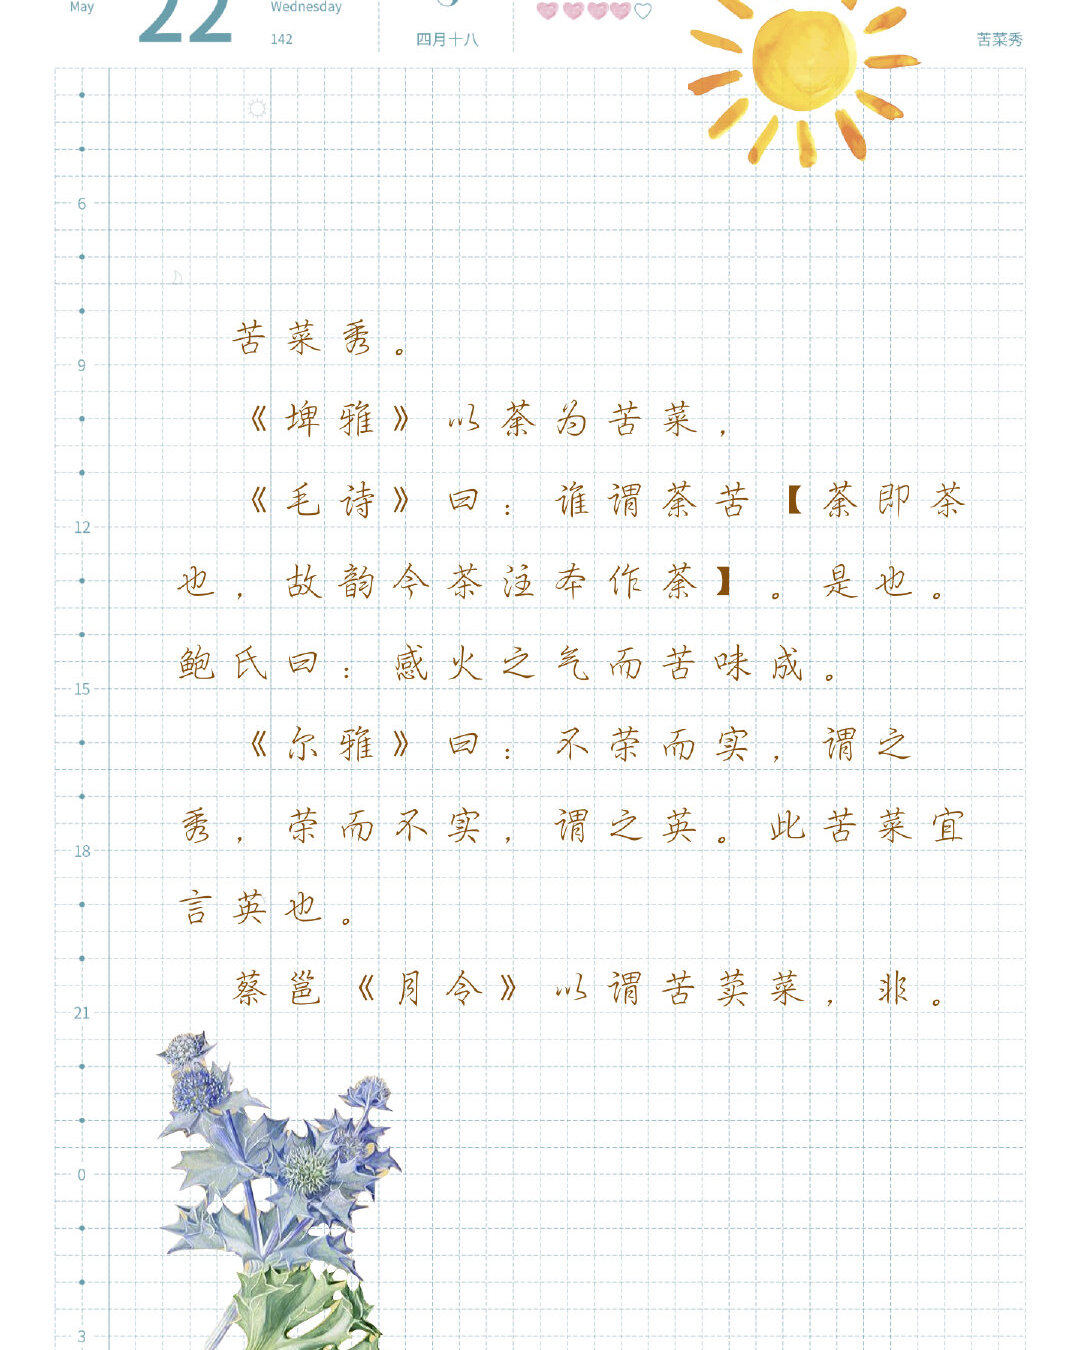 May 22 Wednesday
142 四月十八 苦菜秀
6
苦菜秀。
9
《埤雅》以荼为苦菜，
《毛诗》曰：谁谓荼苦【荼即茶
12
也，故韵今茶注本作荼】。是也。
鲍氏曰：感火之气而苦味成。
15
《尔雅》曰：不荣而实，谓之
秀，荣而不实，谓之英。此苦菜宜
18
言英也。
蔡邕《月令》以谓苦荬菜，非。
21
0
3